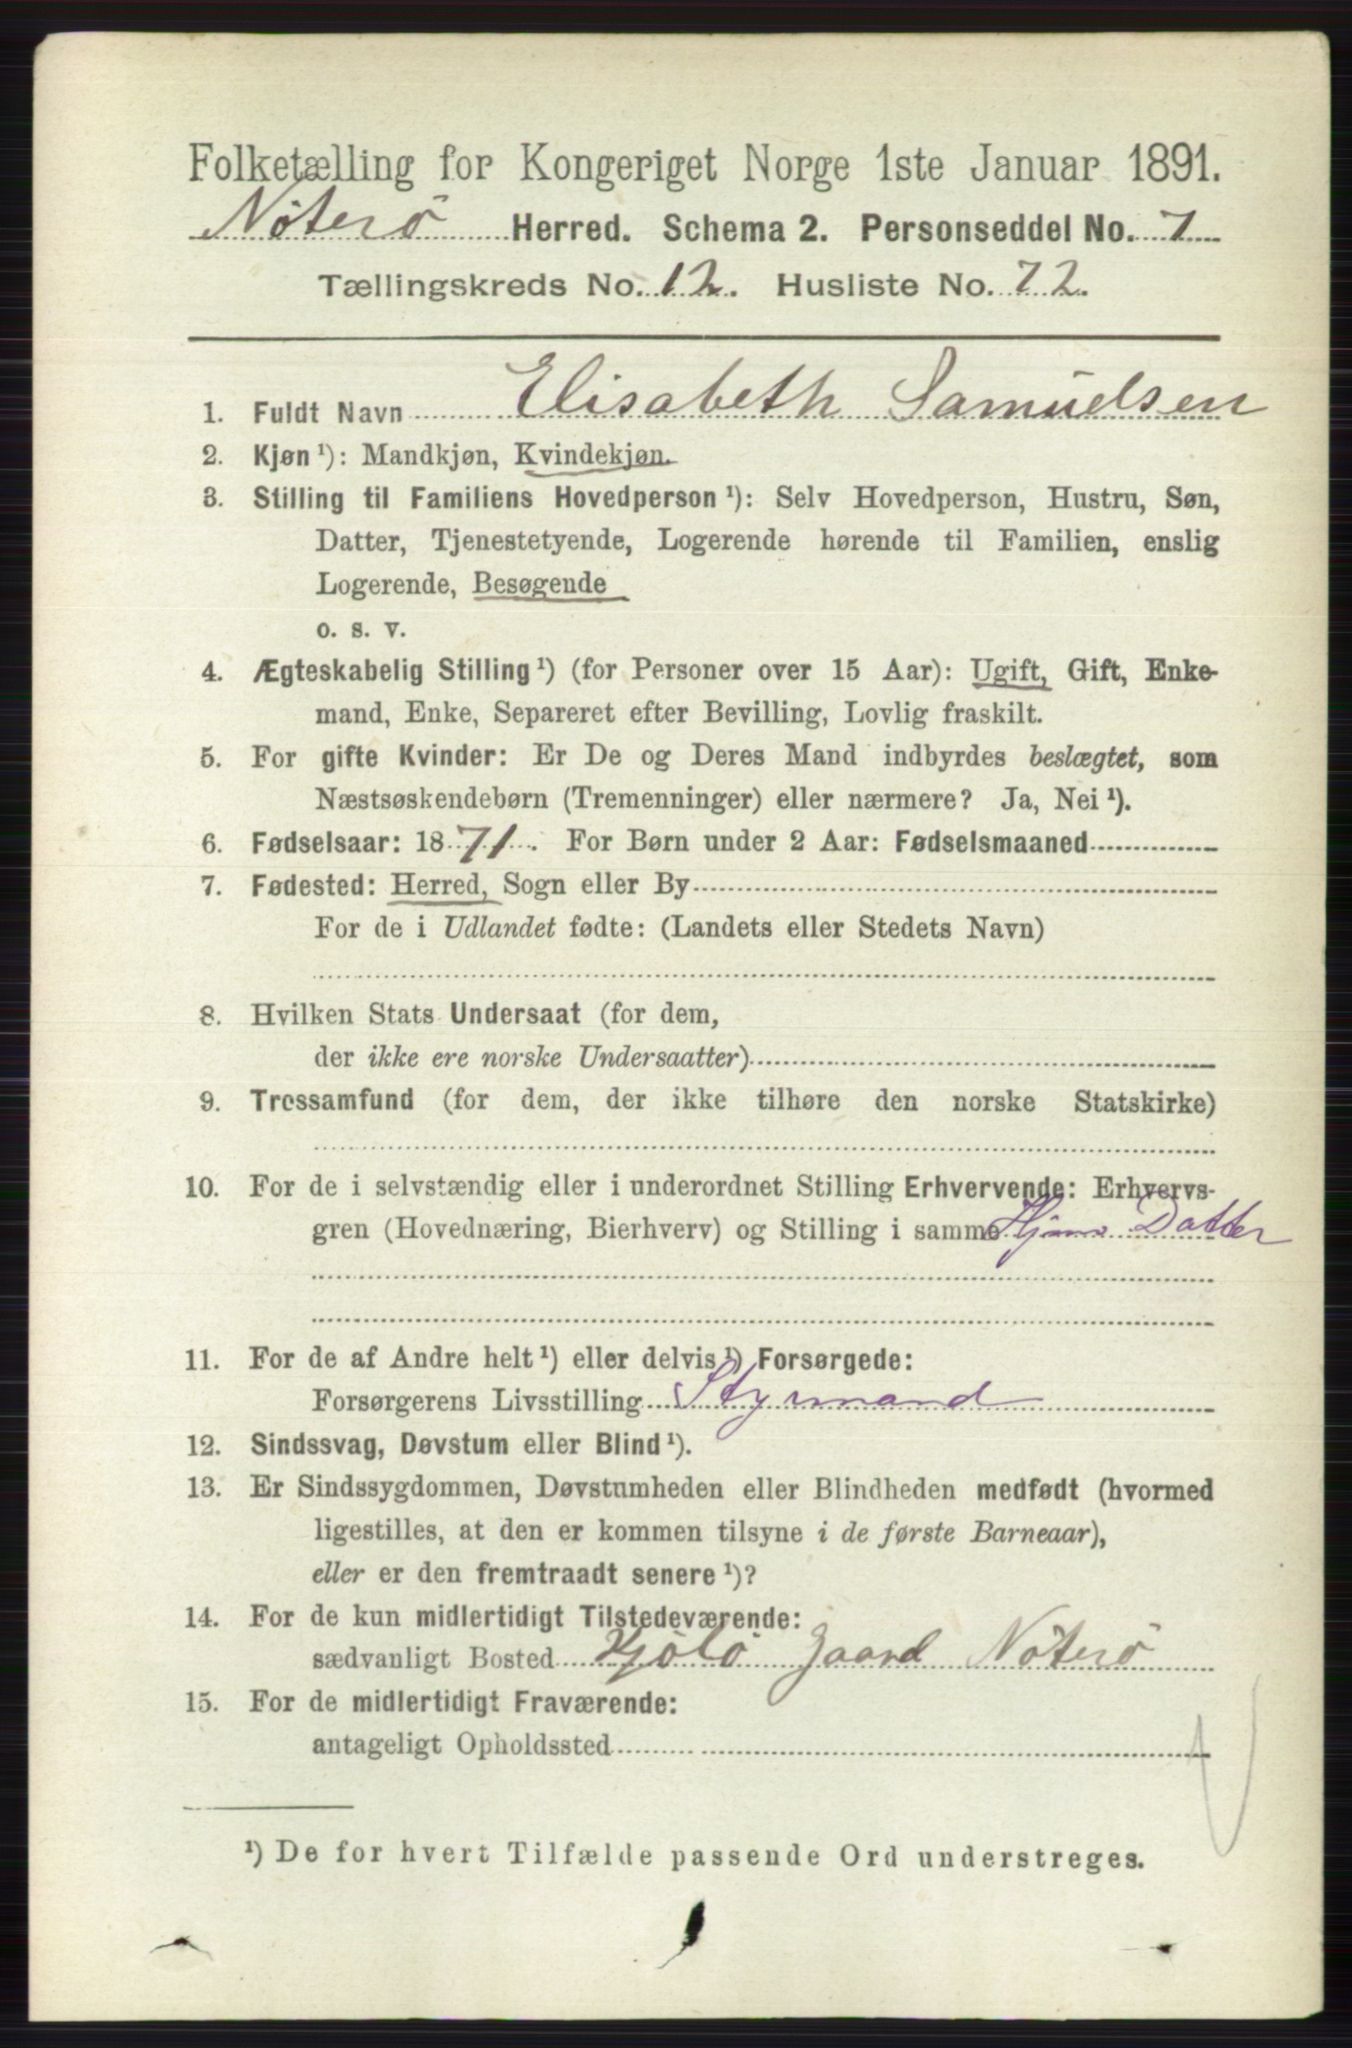 Folketælling for Kongeriget Norge 1ste Januar 1891.
Nöterö Herred. Schema 2. Personseddel No. 7
Tællingskreds No. 12. Husliste No. 72.
1. Fuldt Navn Elisabeth Samuelsen
2. Kjøn ¹): Mandkjøn, Kvindekjøn.
3. Stilling til Familiens Hovedperson ¹): Selv Hovedperson, Hustru, Søn,
Datter, Tjenestetyende, Logerende hørende til Familien, enslig
Logerende, Besøgende
o. s. v.
4. Ægteskabelig Stilling ¹) (for Personer over 15 Aar): Ugift, Gift, Enke-
mand, Enke, Separeret efter Bevilling, Lovlig fraskilt.
5. For gifte Kvinder: Er De og Deres Mand indbyrdes beslægtet, som
Næstsøskendebørn (Tremenninger) eller nærmere? Ja, Nei ¹).
6. Fødselsaar: 1871. For Børn under 2 Aar: Fødselsmaaned
7. Fødested: Herred, Sogn eller By
For de i Udlandet fødte: (Landets eller Stedets Navn)
8. Hvilken Stats Undersaat (for dem,
der ikke ere norske Undersaatter)
9. Trossamfund (for dem, der ikke tilhøre den norske Statskirke)
10. For de i selvstændig eller i underordnet Stilling Erhvervende: Erhvervs-
gren (Hovednæring, Bierhverv) og Stilling i samme Datter
11. For de af Andre helt ¹) eller delvis ¹) Forsørgede:
Forsørgerens Livsstilling Styrmand
12. Sindssvag, Døvstum eller Blind ¹).
13. Er Sindssygdommen, Døvstumheden eller Blindheden medfødt (hvormed
ligestilles, at den er kommen tilsyne i de første Barneaar),
eller er den fremtraadt senere ¹)?
14. For de kun midlertidigt Tilstedeværende:
sædvanligt Bosted Gaard Nöterö
15. For de midlertidigt Fraværende:
antageligt Opholdssted
¹) De for hvert Tilfælde passende Ord understreges.